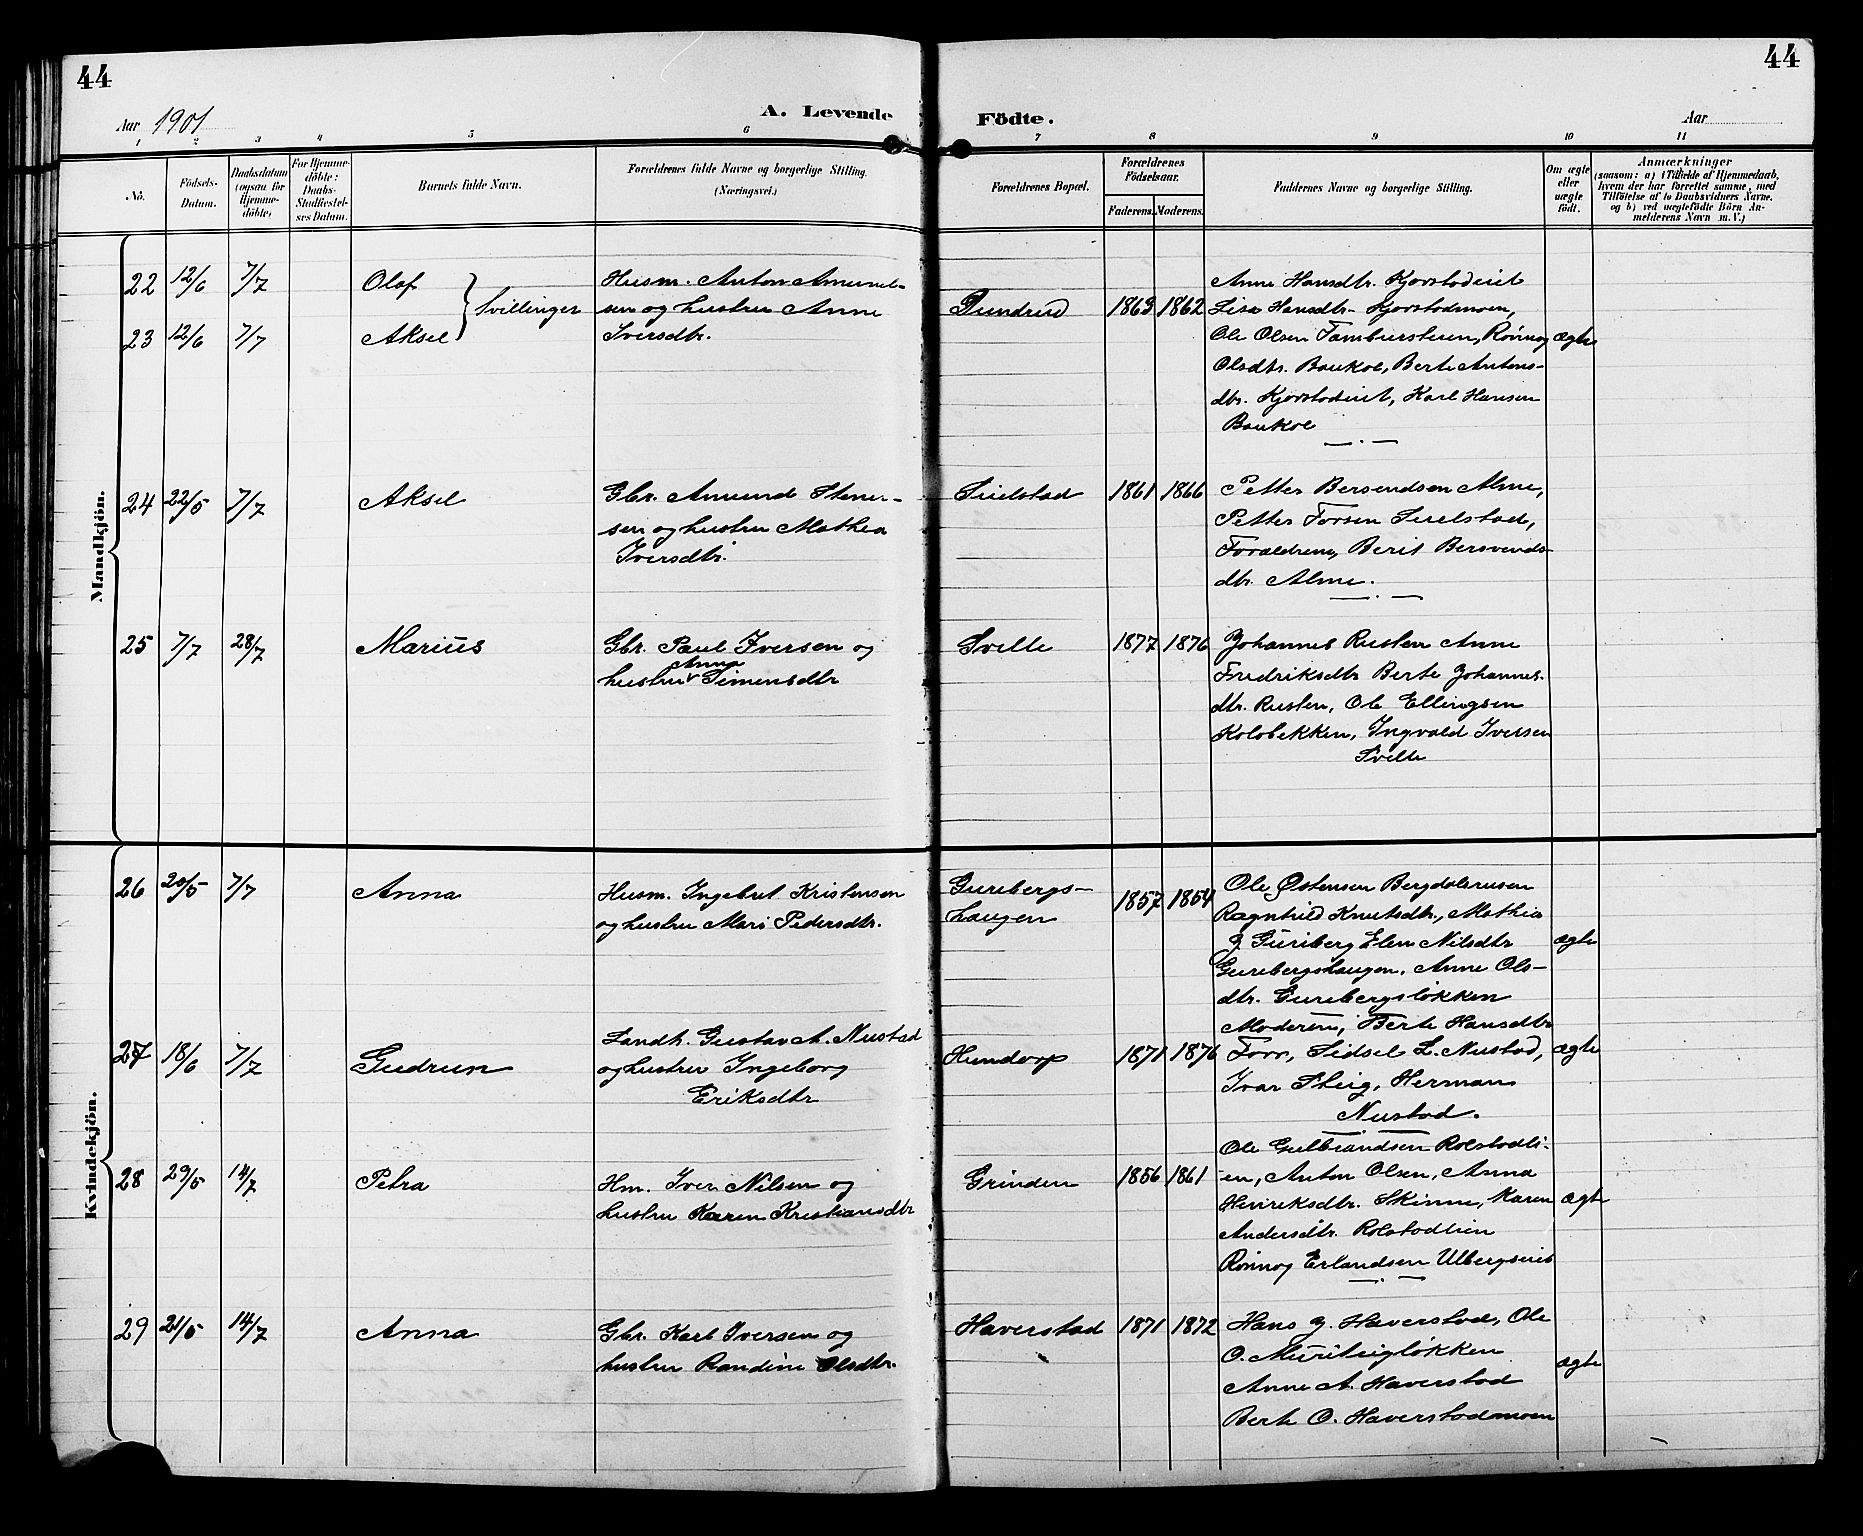 44
44
Aar 1901
A. Levende
Födte.
Aar
1 2 3 4 5 6 7 8 9 10 11
No.
Födsels-Datum.
Daabsdatum (ogsaa for Hjemme-döbte)
For Hjemme-döbte: Daabs-Stadfæstel-ses Datum.
Barnets fulde Navn.
Forældrenes fulde Navne og borgerlige Stilling.
(Næringsvei.)
Forældrenes Bopæl.
Forældrenes Födselsaar.
Faderens. Moderens.
Faddernes Navne og borgerlige Stilling.
Om ægte eller uægte födt.
Anmærkninger
(saasom: a) i Tilfælde af Hjemmedaab,
hvem der har forrettet samme, med
Tilföielse af to Daabsvidners Navne,
og b) ved uægtefödte Börn An-
melderens Navn m. V.)
Mandkjön.
22 12/6 7/7 Olaf
23 12/6 7/7 Aksel
Tvillinger
Husm. Anton Amund-
sen og hustru Anne
Iversdtr.
Sundrud 1863 1862
Anne Hansdtr. Kjorstadeiet
Lise Hansdtr. Kjorstadmoen,
Ole Olsen Tamburstuen, Rønnog
Olsdtr. Baukol, Berte Antons-
dtr. Kjorstadeiet, Karl Hansen
Baukol
ægte
24 22/5 7/7 Aksel
Gbr. Amund Stener-
sen og hustru Mathea
Iversdtr.
Suelstad 1861 1866
Petter Bersvendsen Alme,
Petter Torsen Suelstad,
Forældrene, Berit Bersvends-
dtr. Alme.
25 7/7 28/7 Marius
Gbr. Paul Iversen og
hustru Anna Simensdtr
Tvette 1877 1876
Johannes Rusten Anne
Fredriksdtr Berte Johannes-
dtr. Rusten, Ole Ellingsen
Kolobekken, Ingvald Iversen
Tvette
Kvindekjön.
26 20/5 7/7 Anna
Husm. Ingebret Kristensen
og hustru Mari Pedersdtr.
Gurebergs-
haugen
1857 1854
Ole Østensen Bergdolsrusen
Ragnhild Knutsdtr., Mathia
J Guriberg Elen Nilsdtr
Gurebergshaugen, Anne Ols-
dtr. Gurebergsløkken
ægte
27 18/6 7/7 Gudrun
Landh. Gustav A. Nustad
og hustru Ingeborg
Eriksdtr
Hundorp 1871 1876
Moderen, Berte Hansdtr
Forr, Sidsel L. Nustad,
Ivar Steig, Herman
Nustad.
ægte
28 29/5 14/7 Petra
Hm. Iver Nilsen og
hustru Karen Kristiansdtr
Grinden 1856 1861
Ole Gulbrandsen Rolstadli-
en, Anton Olsen, Anna
Henriksdtr. Skinne, Karen
Andersdtr. Rolstadlien
Rønnog Erlandsen Ulbergseiet
ægte
29 21/5 14/7 Anna
Gbr. Karl Iversen og
hustru Randine Olsdtr.
Haverstad 1871 1872
Hans J. Haverstad, Ole
O. Muriteigløkken
Anne A. Haverstad
Berte O. Haverstadmoen
ægte